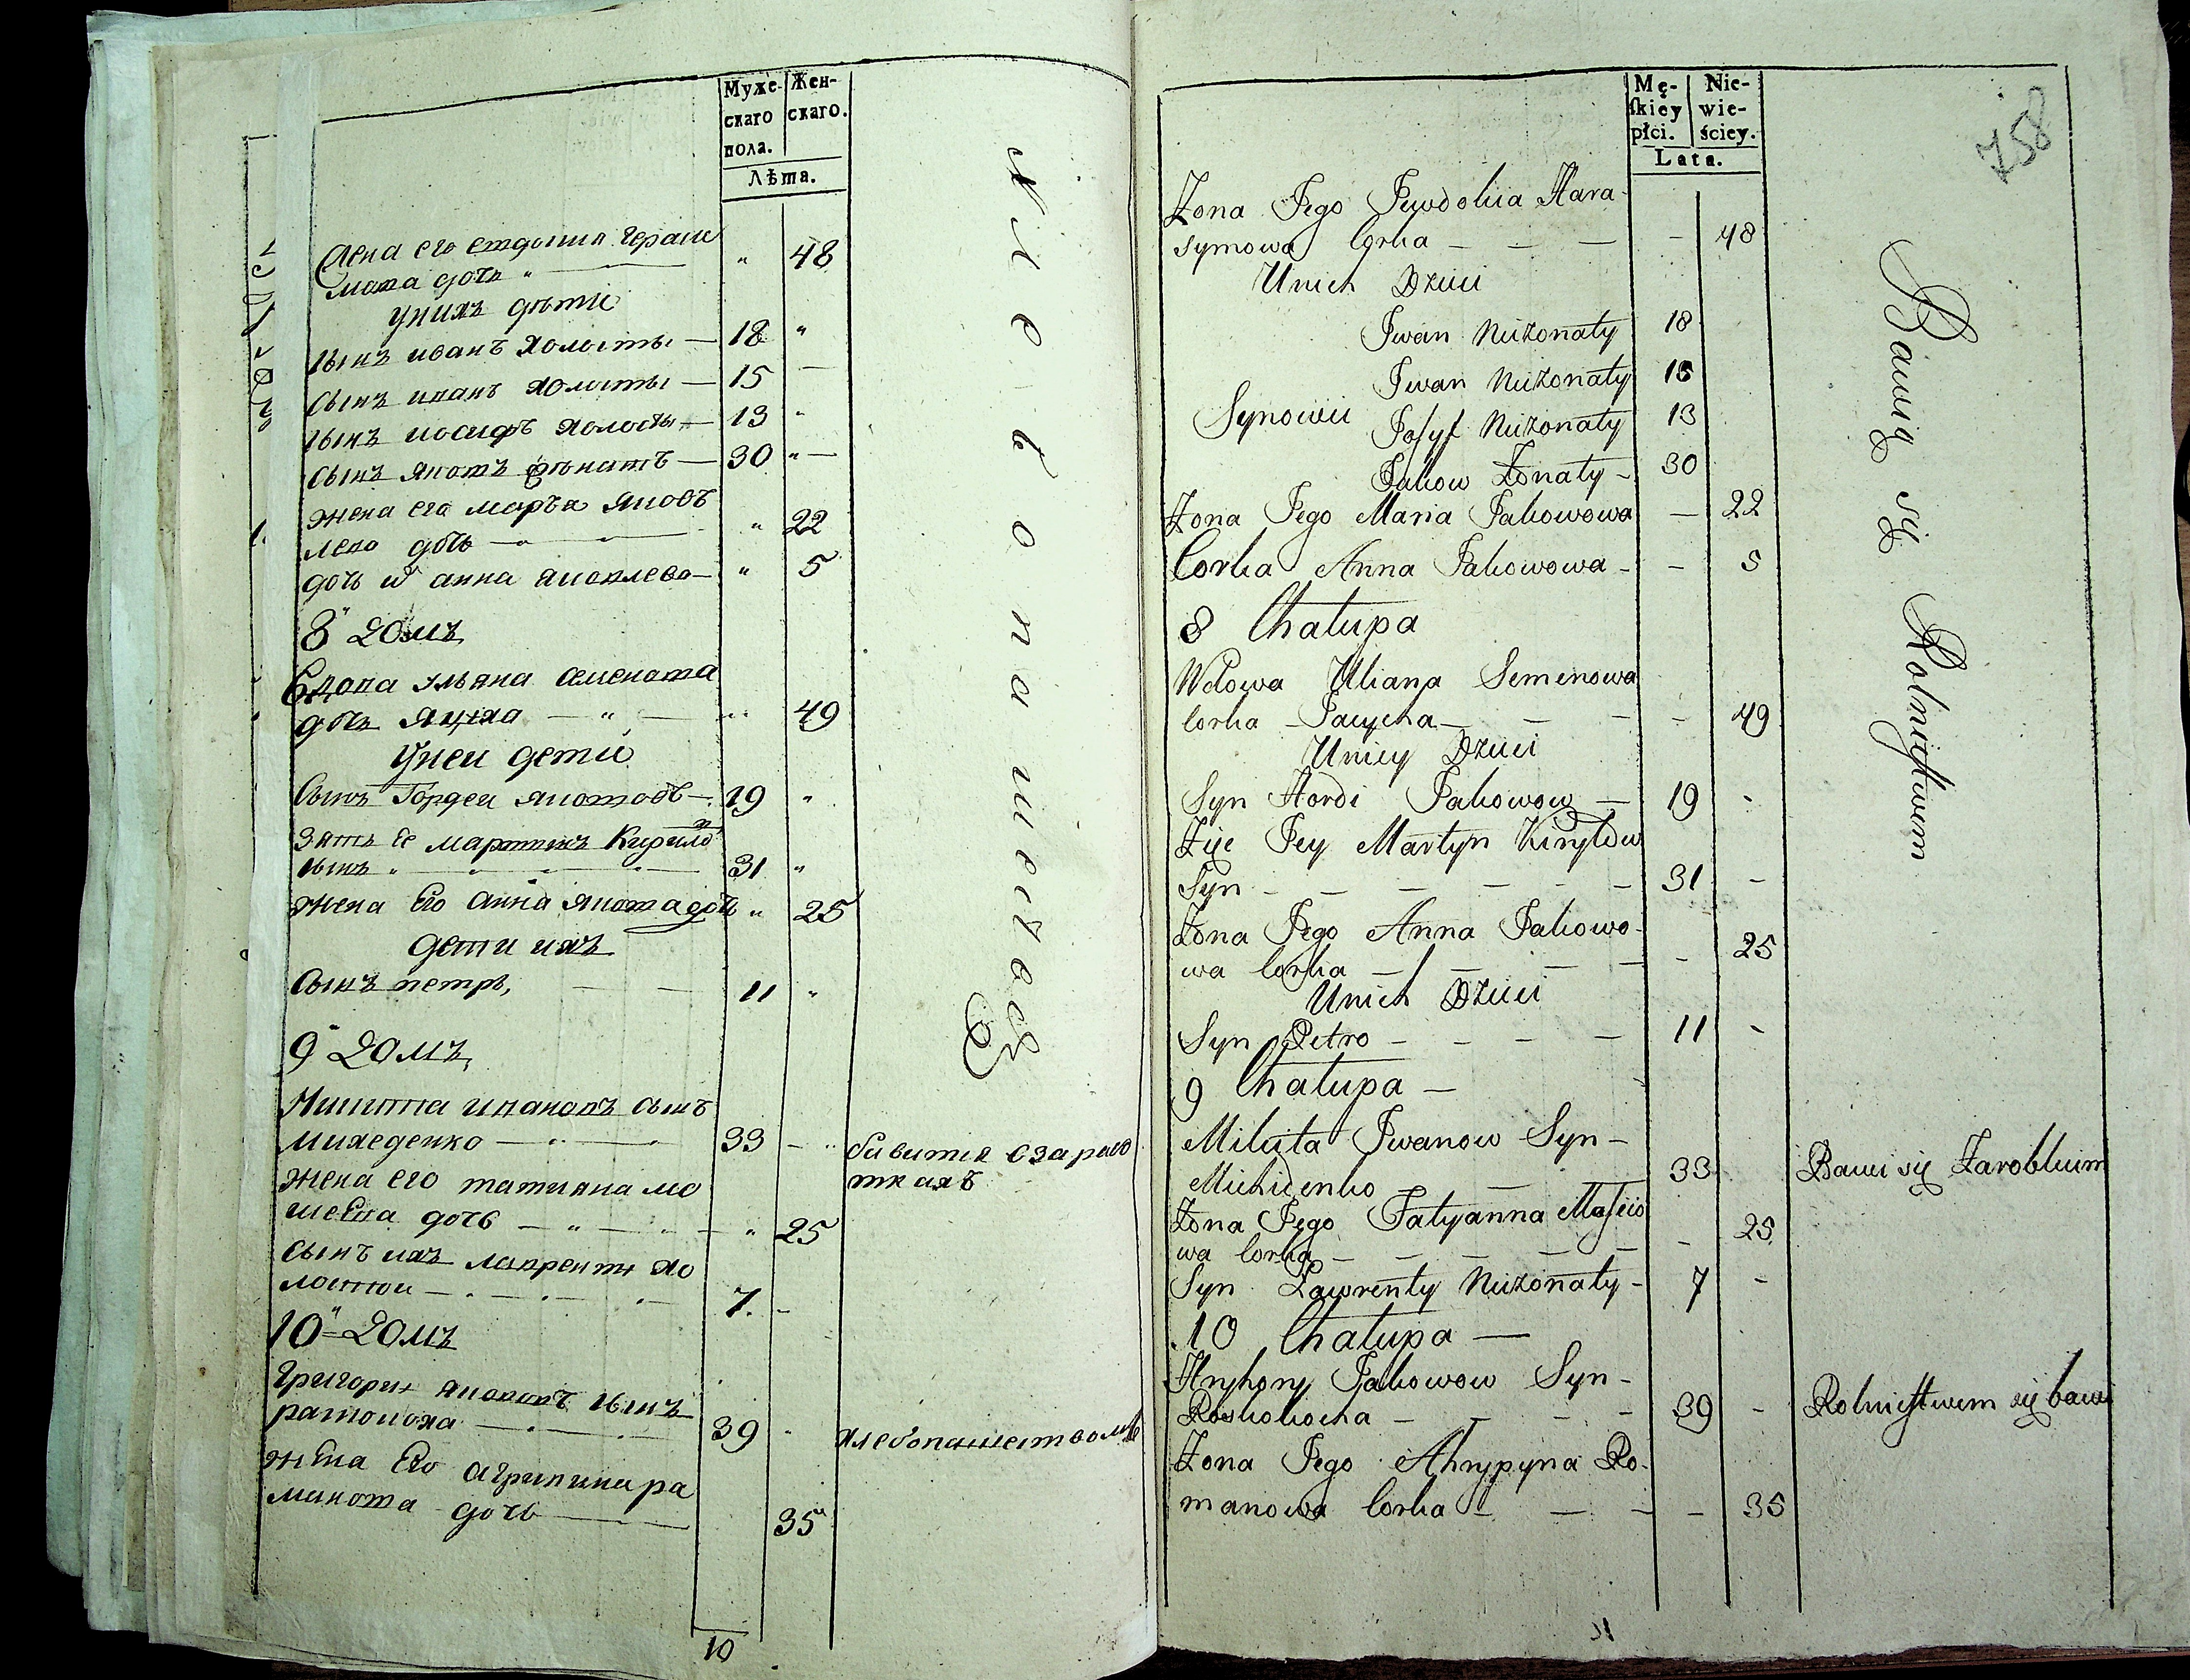 Муже-
скаго
пола.
Жен-
скаго.
Лѣта.
Жена его евдокия Гераси
мова дочь
У нихъ дѣти
сынъ иванъ холосты 18
сынъ иванъ холосты 15
сынъ иосифъ холосты 13
сынъ яковъ женатъ 30
жена его марья яковъ
лева дочь 22
дочь анна яковлева 5
8 домъ
вдова ульяна семенова
дочь 49
У неи дети
Сынъ Гордеи якововъ 19
Зять ее мартинъ Кирило
сынъ 31
жена Его анна якова дочь 25
дети ихъ
Сынъ петръ, 11
9 домъ
Никита ивановъ сынъ
михеденко 33
жена его татияна мо
шеева дочь 25
Сынъ ихъ лаврентi хо
лостои 7.
10 домъ
Григорiи якововъ сынъ
39
жена Его агрипина ра
манова дочь 35
48
Хлебопашествомъ
бавитця зарабо
ткахъ
хлебопашествомъ
10
Mę-
skiey
płci.
Nie-
wie-
ściey.
Lata.
758
Zona Jego Jewdokia Hara-
symowa Corka — — — — 48
Unich Dzieci
Iwan Nieżonaty 18
Iwan Nieżonaty 15
Synowie Josyf Nieżonaty 13
Jakow Żonaty - 30
Żona Jego Maria Jakowowa — 22
Corka Anna Jakowowa - - 5
8 Chałupa
Wdowa Uliana Semenowa
Corka — — — - 49
Uniey Dzieci
Syn Hordi Jakowow — 19 -
Zięć Jey Martyn Kiryłow
Syn — — — — — 31 —
Żona Jego Anna Jakowo-
wa Corka — — — — - 25
Unich Dzieci
Syn Petro - - - — 11 -
9 Chałupa —
Mikita Iwanow Syn -
Michidenko — — — 33
Żona Jego Tatyanna Mosieio
wa Corka — — — — — - 25
Syn Lawrenty Nieżonaty - 7 -
10 Chałupa —
Hryhory Jakowow Syn -
— — — - 39 -
Żona Jego Ahrypyna Ro-
manowa Corka - — - - 35
Bawią się Rolnictwem
Bawi się Zarobkiem
Rolnictwem się bawi